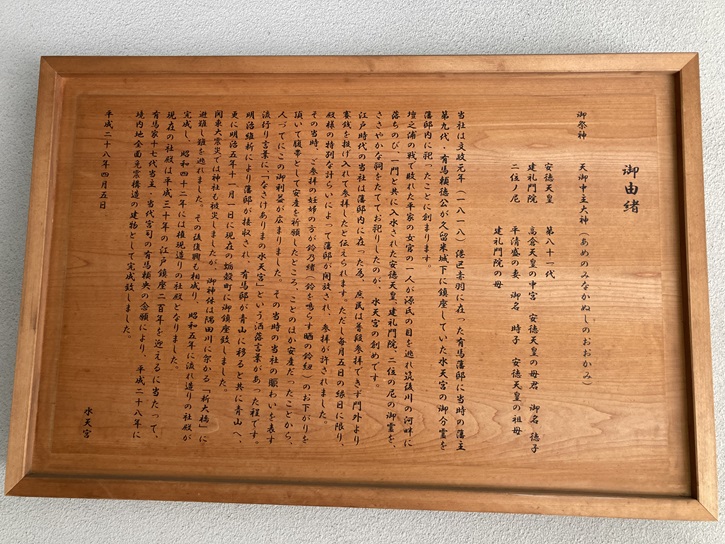 御由緒
御祭神　天御中主大神（あめのみなかぬしのおおかみ）
安徳天皇　第八十一代
建礼門院　高倉天皇の中宮　安徳天皇の母君　御名　徳子
二位ノ尼　平清盛の妻　御名　時子　安徳天皇の祖母
建礼門院の母
当社は文政元年（一八一八）港区赤羽に在った有馬藩邸に当時の藩主
第九代・有馬頼徳公が久留米城下に鎮座していた水天宮の御分霊を
藩邸内に祀ったことに創まります。
壇之浦の戦で敗れた平家の女官の一人が源氏の目を逃れ筑後川の河畔に
落ちのび、一門と共に入水された安徳天皇、建礼門院、二位の尼の御霊を、
ささやかな祠をたててお祀りしたのが、水天宮の創めです。
江戸時代の当社は藩邸内に在った為、庶民は普段参拝できず門外より
賽銭を投げ入れて参拝したと伝えられます。ただし毎月五日の縁日に限り、
殿様の特別な計らいによって藩邸が開放され、参拝が許されました。
その当時、ご参拝の妊婦の方が鈴乃緒（鈴を鳴らす晒の鈴紐）のお下がりを
頂いて腹帯として安産を祈願したところ、ことのほか安産だったことから、
人づてにこの御利益が広まりました。その当時の当社の賑わいを表す
流行り言葉に「なさけありまの水天宮」という洒落言葉があった程です。
明治維新により有馬藩邸が接収され、有馬邸が青山に移ると共に青山へ、
更に明治五年十一月一日に現在の蛎殻町に御鎮座致しました。
関東大震災では神社も被災しましたが、御神体は隅田川に架かる「新大橋」に
避難し難を逃れました。その後復興も相成り、昭和五年に流れ造りの社殿が
完成し、昭和四十二年には権現造りの社殿となりました。
現在の社殿は平成三十年の江戸鎮座二百年を迎えるに当たって、
有馬家十七代当主・当代宮司の有馬頼央の念願により、平成二十八年に
境内地全面免震構造の建物として完成致しました。
平成二十八年四月五日
水天宮